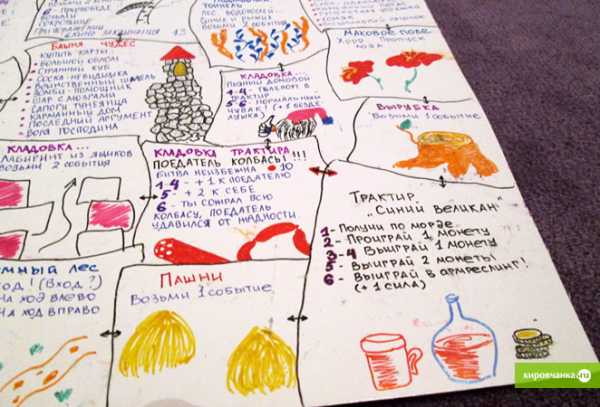 тоннель
БАШНЯ ЧУДЕС
- КУПИТЬ КАРТУ
- СТРАННЫЙ КУБ
- СОСКА-НЕВИДИМКА
- ВОИНСТВЕННЫЙ ШМЕЛЬ
- ЗОМБИ-ПОМОЩНИК
- ШАР С МЮЛРАМИ
- САПОГИ ТУНЕЯДЦА
- КАРМАННЫЙ ДОМ
- ПОСЛЕДНИЙ АРГУМЕНТ
- ВОЛЯ ГОСПОДИНА
Возьми 1 событие
КЛАДОВКА...
ПЬЯНЫЙ ДОМОВОЙ
1-4 - ТЕЛЕПОРТ В
ТРАКТИР
5-6 - НОРМАЛЬНЫЙ
ЧУВАК! (+1 БЕЗДЕ
ЛУШКА)
МАКОВОЕ ПОЛЕ
ХРРР ПРОПУСК
ХОДА
ВЫРУБКА
ВОЗЬМИ 1 СОБЫТИЕ
КЛАДОВКА...
ЛАБИРИНТ ИЗ ЯЩИКОВ
ВОЗЬМИ 2 СОБЫТИЯ
КЛАДОВКА ТРАКТИРА
ПОЕДАТЕЛЬ КОЛБАСЫ!!!!
БИТВА НЕИЗБЕЖНА 10
1-4 - +1 К ПОЕДАТЕЛЮ
5 - +2 К СЕБЕ
6 - ТЫ СОЖРАЛ ВСЮ
КОЛБАСУ, ПОЕДАТЕЛЬ
УДАВИЛСЯ ОТ ЖАДНОСТИ.
ТРАКТИР
„СИНИЙ ВЕЛИКАН"
1- ПОЛУЧИ ПО МОРДЕ
2- ПРОИГРАЙ 1 МОНЕТУ
3-4 ВЫИГРАЙ 1 МОНЕТУ
5- ВЫИГРАЙ 2 МОНЕТЫ
6 - ВЫИГРАЙ В АРМРЕСТЛИНГ!
(+1 СИЛА)
ЛЕС
ХОД! (ВХОД?)
НА ХОД ВЛЕВО
НА ХОД ВПРАВО
ПАШНИ
ВОЗЬМИ 1 СОБЫТИЕ
кировчанка.ru